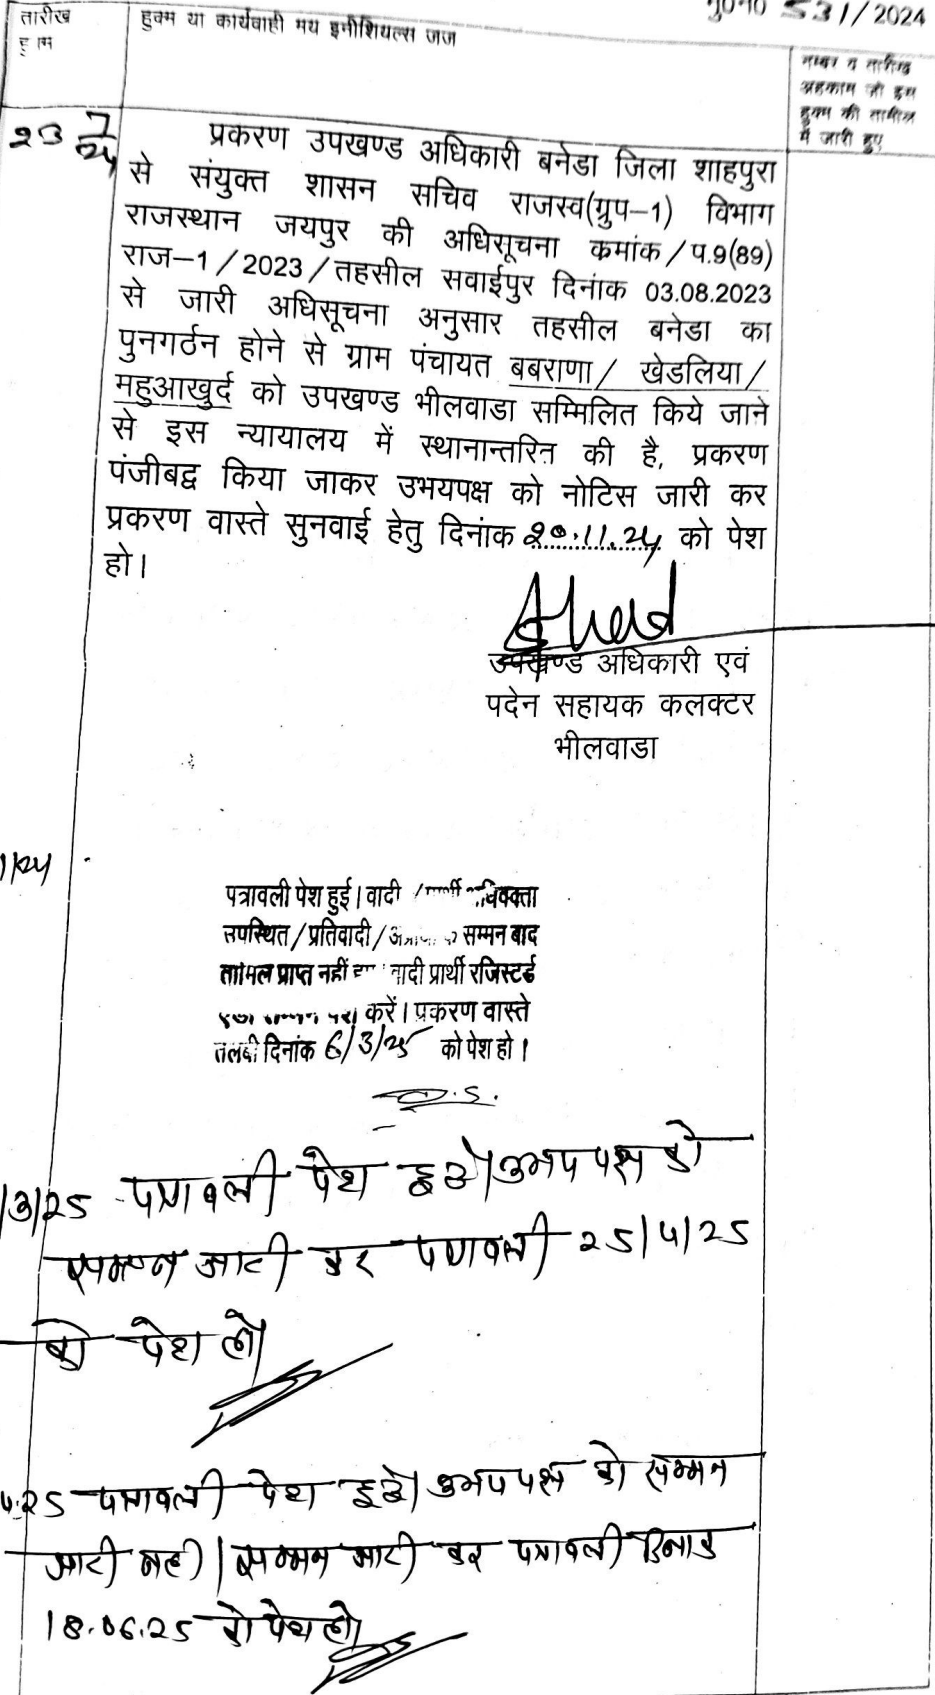 मु0न0 531/2024
तारीख
हुक्म या कार्यवाही मय इनीशियल्स जज
नम्बर व तारीख
अहकाम जो इस
हुक्म की तामील
में जारी हुए
23/7/24
प्रकरण उपखण्ड अधिकारी बनेडा जिला शाहपुरा
से संयुक्त शासन सचिव राजस्व(ग्रुप–1) विभाग
राजस्थान जयपुर की अधिसूचना कमांक/प.9(89)
राज–1/2023/तहसील सवाईपुर दिनांक 03.08.2023
से जारी अधिसूचना अनुसार तहसील बनेडा का
पुनगर्ठन होने से ग्राम पंचायत बबराणा/ खेडलिया/
महुआखुर्द को उपखण्ड भीलवाडा सम्मिलित किये जाने
से इस न्यायालय में स्थानान्तरित की है, प्रकरण
पंजीबद्व किया जाकर उभयपक्ष को नोटिस जारी कर
प्रकरण वास्ते सुनवाई हेतु दिनांक 20.11.24 को पेश
हो।
उपखण्ड अधिकारी एवं
पदेन सहायक कलक्टर
भीलवाडा
1/24
पत्रावली पेश हुई। वादी /
उपस्थित/प्रतिवादी/ सम्मन बाद
तामिल प्राप्त नहीं वादी प्रार्थी रजिस्टर्ड
करें। प्रकरण वास्ते
तलबी दिनांक 6/3/25 को पेश हो।
/3/25 पत्रावली पेश हुई। उभयपक्ष को
सम्मन जारी कर पत्रावली 25/4/25
को पेश हो।
4.25 पत्रावली पेश हुई। उभयपक्ष को सम्मन
जारी नही। सम्मन जारी कर पत्रावली दिनांक
18.06.25 को पेश हो।